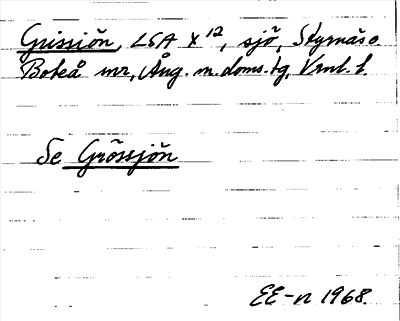 Grissiön, LSA X 12, sjö, Styrnäs o.
Boteå snr, Ång. m. doms.tg, Vrnl. l.
Se Grössjön
EE-n 1968.